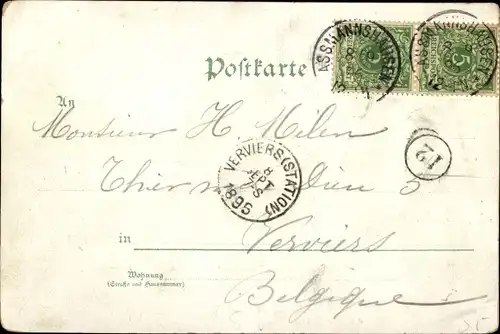 Postkarte
ASSMANNSHAUSEN
ASSMANNSHAUSEN
5
An
Monsieur H. Milen
Thier 5
VERVIERS (STATION)
1898
12
in Verviers
Wohnung
(Straße und Hausnummer)
Belgique